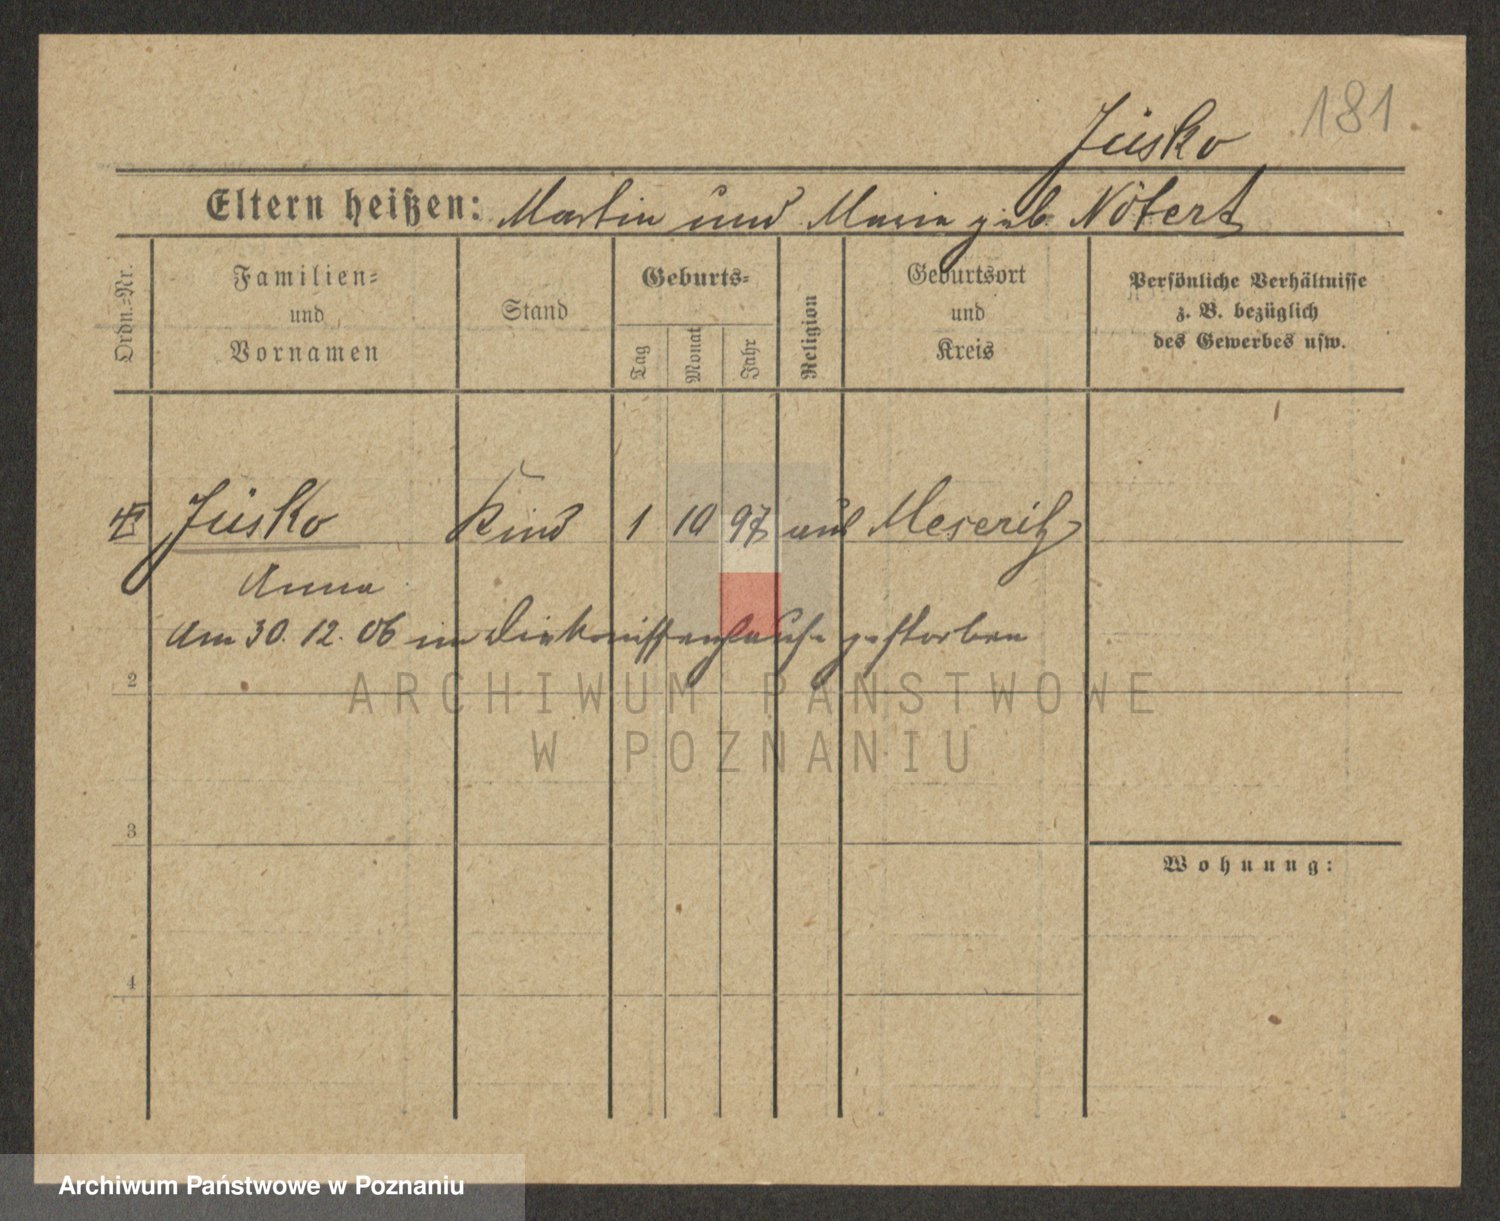 181
Jüsko
Eltern heißen: Martin und Marie geb. Nötert
Ordn.-Nr.
Familien- und Vornamen
Stand
Geburts-
Tag
Monat
Jahr
Religion
Geburtsort und Kreis
Persönliche Verhältnisse
z. B. bezüglich
des Gewerbes usw.
Jüsko Kind 1 10 97 aus Meseritz
Anna
Am 30. 12. 06 im Diakonissenhause gestorben
2
ARCHIWUM PAŃSTWOWE
W POZNANIU
3
Wohnung:
4
Archiwum Państwowe w Poznaniu